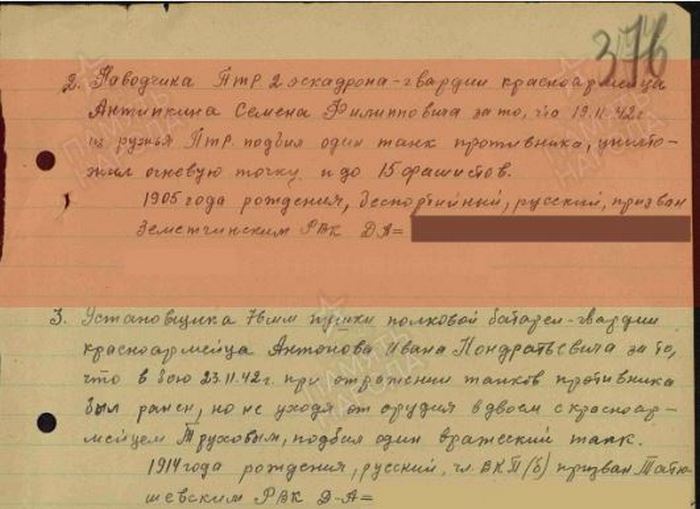 376
2. Наводчика ПТР 2 эскадрона-гвардии красноармейца
Антипкина Семена Филипповича за то, что 19.11.42 г.
из ружья ПТР подбил один танк противника, уничто-
жил огневую точку и до 15 фашистов.
1905 года рождения, беспартийный, русский, призван
Земетчинским РВК Д-А=
3. Установщика 76 мм пушки полковой батареи-гвардии
красноармейца Антонова Ивана Кондратьевича за то,
что в бою 23.11.42 г. при отражении танков противника
был ранен, но не уходя от орудия вдвоем с красноар-
мейцем Труховым, подбил один вражеский танк.
1914 года рождения, русский, чл. ВКП(б) призван Татю-
шевским РВК Д-А=
ПАМЯТЬ НАРОДА